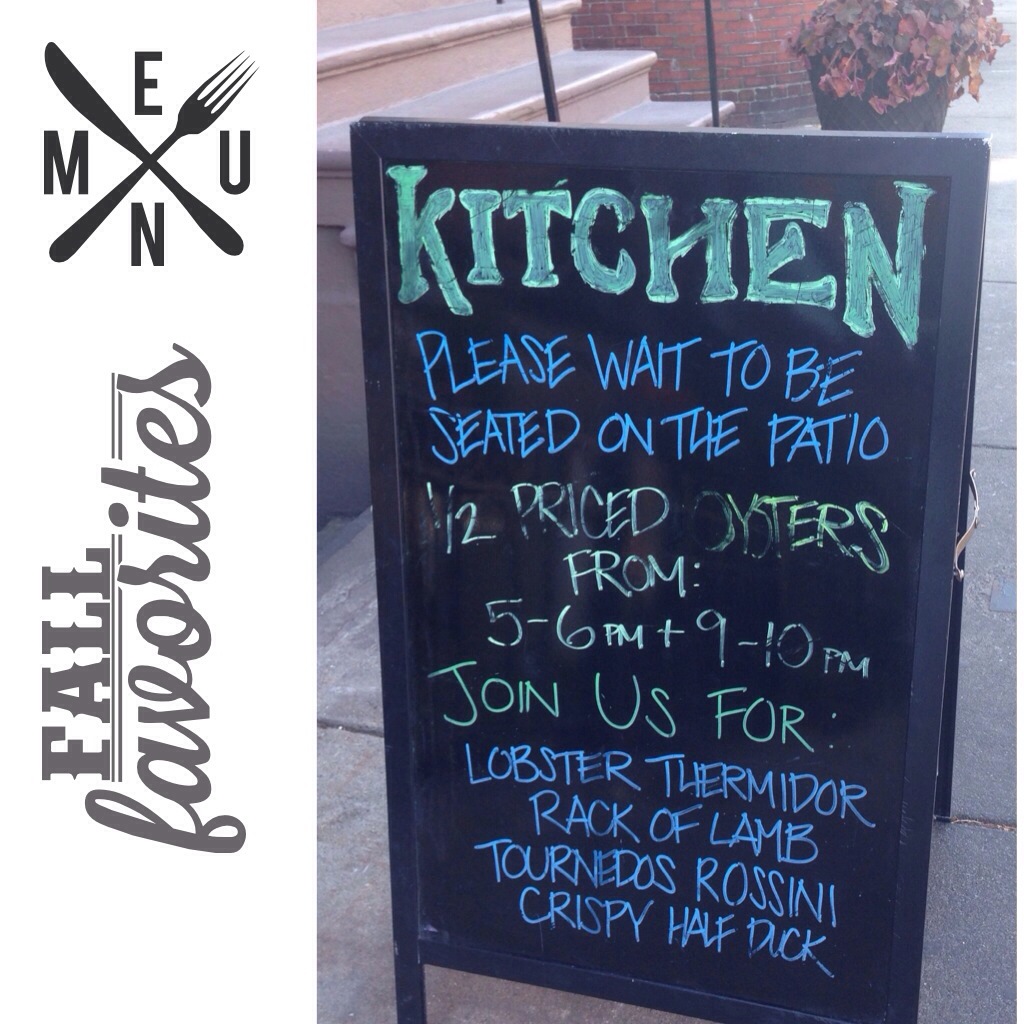 MENU
FALL
favorites
KITCHEN
PLEASE WAIT TO BE
SEATED ON THE PATIO
1/2 PRICED OYSTERS
FROM:
5-6PM + 9-10PM
JOIN US FOR:
LOBSTER THERMIDOR
RACK OF LAMB
TOURNEDOS ROSSINI
CRISPY HALF DUCK